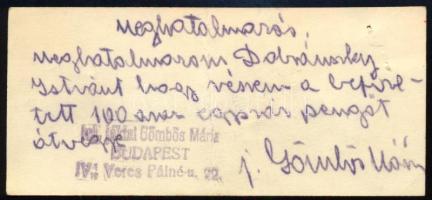 Meghatalmazás.
Meghatalmazom Dobránszky
Istvánt hogy részemre a befize-
tett 100 azaz egyszáz pengőt
átvegye
Gömbös Mária
BUDAPEST
IV. Veres Pálné-u. 22.
j. Gömbös Mária